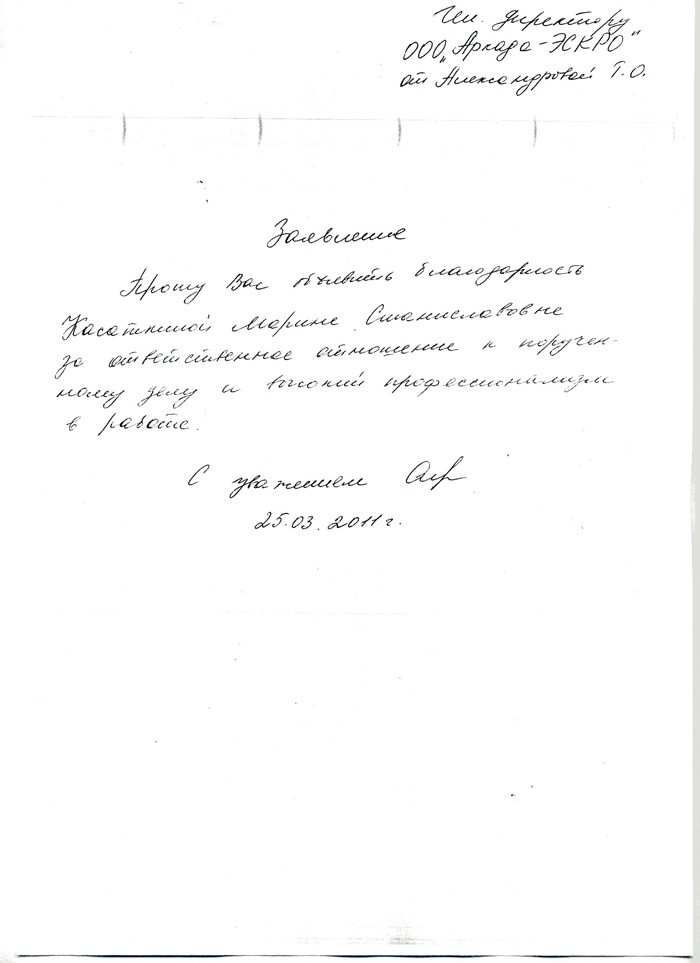 Ген. директору
ООО „Аркада-ЭСКРО"
от Александровой Т.О.
Заявление
Прошу Вас объявить благодарность
Касаткиной Марине Станиславовне
за ответственное отношение к поручен-
ному делу и высокий профессионализм
в работе.
С уважением
25.03.2011г.